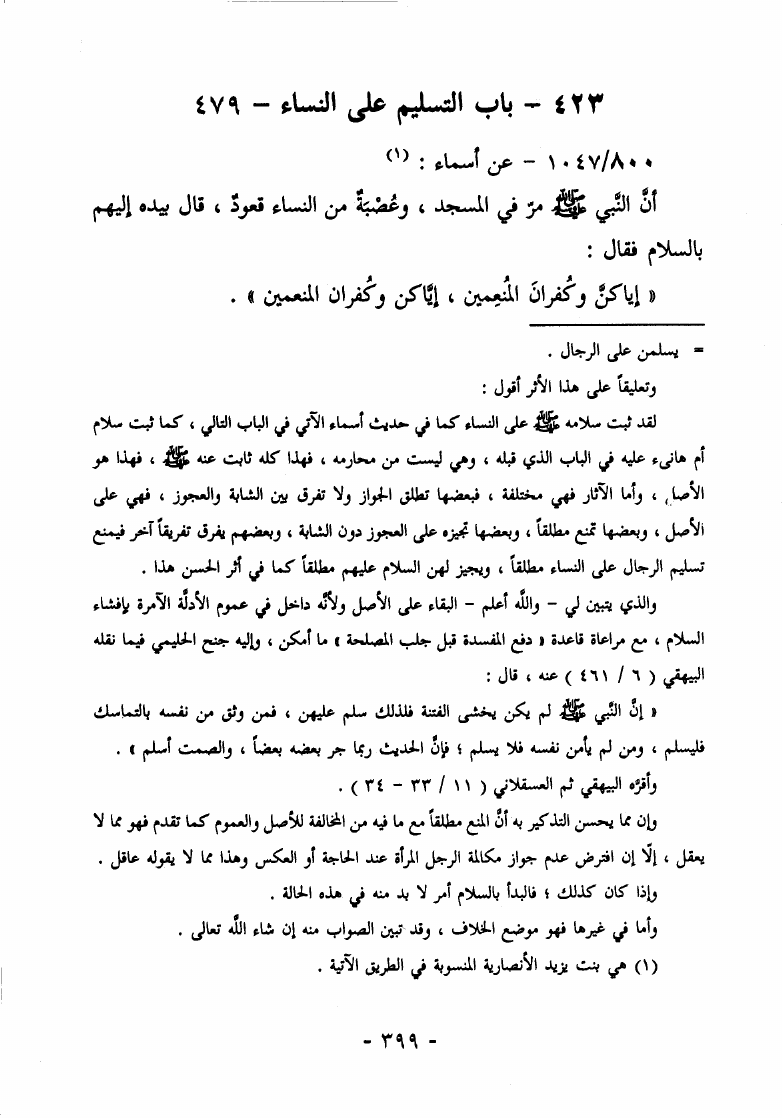 ٤٢٣ - باب التسليم على النساء - ٤٧٩
١٠٤٧/٨٠٠ - عن أسماء : (١)
أنَّ النَّبي ﷺ مرّ في المسجد ، وعُصْبَةٌ من النساء قعودٌ ، قال بيده إليهم
بالسلام فقال :
« إياكنَّ وكُفرانَ المُنعِمين ، إيَّاكن وكُفران المنعمين » .
= يسلمن على الرجال .
وتعليقاً على هذا الأثر أقول :
لقد ثبت سلامه ﷺ على النساء كما في حديث أسماء الآتي في الباب التالي ، كما ثبت سلام
أم هانىء عليه في الباب الذي قبله ، وهي ليست من محارمه ، فهذا كله ثابت عنه ﷺ ، فهذا هو
الأصل ، وأما الآثار فهي مختلفة ، فبعضها تطلق الجواز ولا تفرق بين الشابة والعجوز ، فهي على
الأصل ، وبعضها تمنع مطلقاً ، وبعضها تجيزه على العجوز دون الشابة ، وبعضهم يفرق تفريقاً آخر فيمنع
تسليم الرجال على النساء مطلقاً ، ويجيز لهن السلام عليهم مطلقاً كما في أثر الحسن هذا .
والذي يتبين لي - واللَّه أعلم - البقاء على الأصل ولأنَّه داخل في عموم الأدلَّة الآمرة بإفشاء
السلام ، مع مراعاة قاعدة « دفع المفسدة قبل جلب المصلحة » ما أمكن ، وإليه جنح الحليمي فيما نقله
البيهقي ( ٦ / ٤٦١ ) عنه ، قال :
« إنَّ النَّبي ﷺ لم يكن يخشى الفتنة فلذلك سلم عليهن ، فمن وثق من نفسه بالتماسك
فليسلم ، ومن لم يأمن نفسه فلا يسلم ؛ فإنَّ الحديث ربما جر بعضه بعضاً ، والصمت أسلم » .
وأقرَّه البيهقي ثم العسقلاني ( ١١ / ٣٣ - ٣٤ ) .
وإن مما يحسن التذكير به أنَّ المنع مطلقاً مع ما فيه من المخالفة للأصل والعموم كما تقدم فهو مما لا
يعقل ، إلَّا إن افترض عدم جواز مكالمة الرجل المرأة عند الحاجة أو العكس وهذا مما لا يقوله عاقل .
وإذا كان كذلك ؛ فالبدأ بالسلام أمر لا بد منه في هذه الحالة .
وأما في غيرها فهو موضع الخلاف ، وقد تبين الصواب منه إن شاء اللَّه تعالى .
(١) هي بنت يزيد الأنصارية المنسوبة في الطريق الآتية .
- ٣٩٩ -